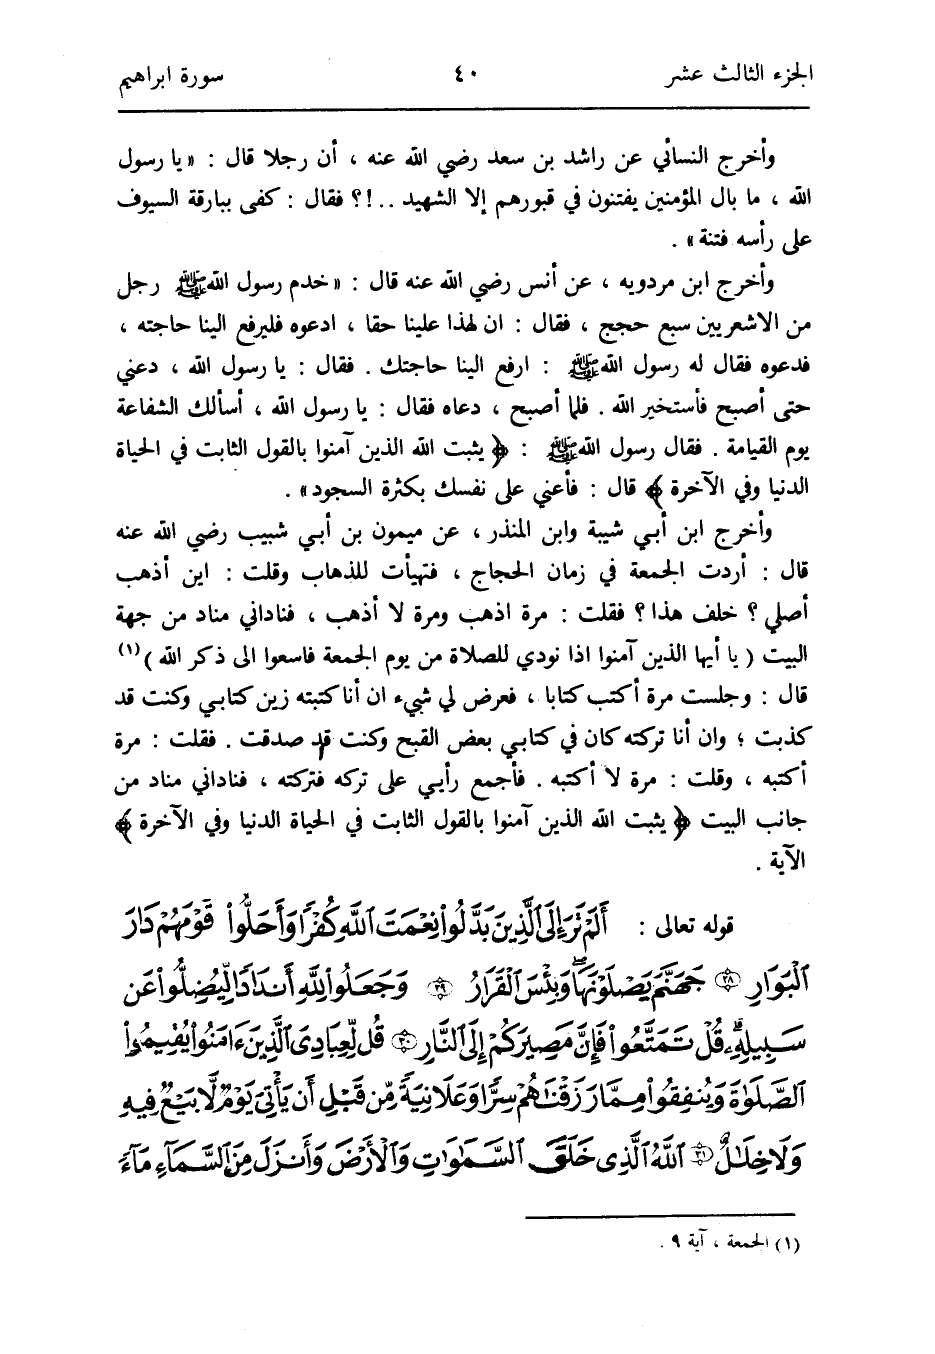 الجزء الثالث عشر ٤٠ سورة ابراهيم
وأخرج النسائي عن راشد بن سعد رضي الله عنه ، أن رجلا قال : « يا رسول
الله ، ما بال المؤمنين يفتنون في قبورهم إلا الشهيد ..!؟ فقال : كفى ببارقة السيوف
على رأسه فتنة » .
وأخرج ابن مردويه ، عن أنس رضي الله عنه قال : « خدم رسول الله ﷺ رجل
من الاشعريين سبع حجج ، فقال : ان لهذا علينا حقا ، ادعوه فليرفع الينا حاجته ،
فدعوه فقال له رسول الله ﷺ : ارفع الينا حاجتك . فقال : يا رسول الله ، دعني
حتى أصبح فأستخير الله . فلما أصبح ، دعاه فقال : يا رسول الله ، أسألك الشفاعة
يوم القيامة . فقال رسول الله ﷺ : ﴿ يثبت الله الذين آمنوا بالقول الثابت في الحياة
الدنيا وفي الآخرة ﴾ قال : فأعني على نفسك بكثرة السجود » .
وأخرج ابن أبي شيبة وابن المنذر ، عن ميمون بن أبي شبيب رضي الله عنه
قال : أردت الجمعة في زمان الحجاج ، فتهيأت للذهاب وقلت : اين أذهب
أصلي ؟ خلف هذا ؟ فقلت : مرة اذهب ومرة لا أذهب ، فناداني مناد من جهة
البيت ( يا أيها الذين آمنوا اذا نودي للصلاة من يوم الجمعة فاسعوا الى ذكر الله ) (١)
قال : وجلست مرة أكتب كتابا ، فعرض لي شيء ان أنا كتبته زين كتابي وكنت قد
كذبت ؛ وان أنا تركته كان في كتابي بعض القبح وكنت قد صدقت . فقلت : مرة
أكتبه ، وقلت : مرة لا أكتبه . فأجمع رأيي على تركه فتركته ، فناداني مناد من
جانب البيت ﴿ يثبت الله الذين آمنوا بالقول الثابت في الحياة الدنيا وفي الآخرة ﴾
الآية .
قوله تعالى : أَلَمْ تَرَ إِلَى ٱلَّذِينَ بَدَّلُوا۟ نِعْمَتَ ٱللَّهِ كُفْرًا وَأَحَلُّوا۟ قَوْمَهُمْ دَارَ
ٱلْبَوَارِ ٢٨ جَهَنَّمَ يَصْلَوْنَهَا ۖ وَبِئْسَ ٱلْقَرَارُ ٢٩ وَجَعَلُوا۟ لِلَّهِ أَندَادًا لِّيُضِلُّوا۟ عَن
سَبِيلِهِۦ ۗ قُلْ تَمَتَّعُوا۟ فَإِنَّ مَصِيرَكُمْ إِلَى ٱلنَّارِ ٣٠ قُل لِّعِبَادِىَ ٱلَّذِينَ ءَامَنُوا۟ يُقِيمُوا۟
ٱلصَّلَوٰةَ وَيُنفِقُوا۟ مِمَّا رَزَقْنَٰهُمْ سِرًّا وَعَلَانِيَةً مِّن قَبْلِ أَن يَأْتِىَ يَوْمٌ لَّا بَيْعٌ فِيهِ
وَلَا خِلَٰلٌ ٣١ ٱللَّهُ ٱلَّذِى خَلَقَ ٱلسَّمَٰوَٰتِ وَٱلْأَرْضَ وَأَنزَلَ مِنَ ٱلسَّمَآءِ مَآءً
(١) الجمعة ، آية ٩ .